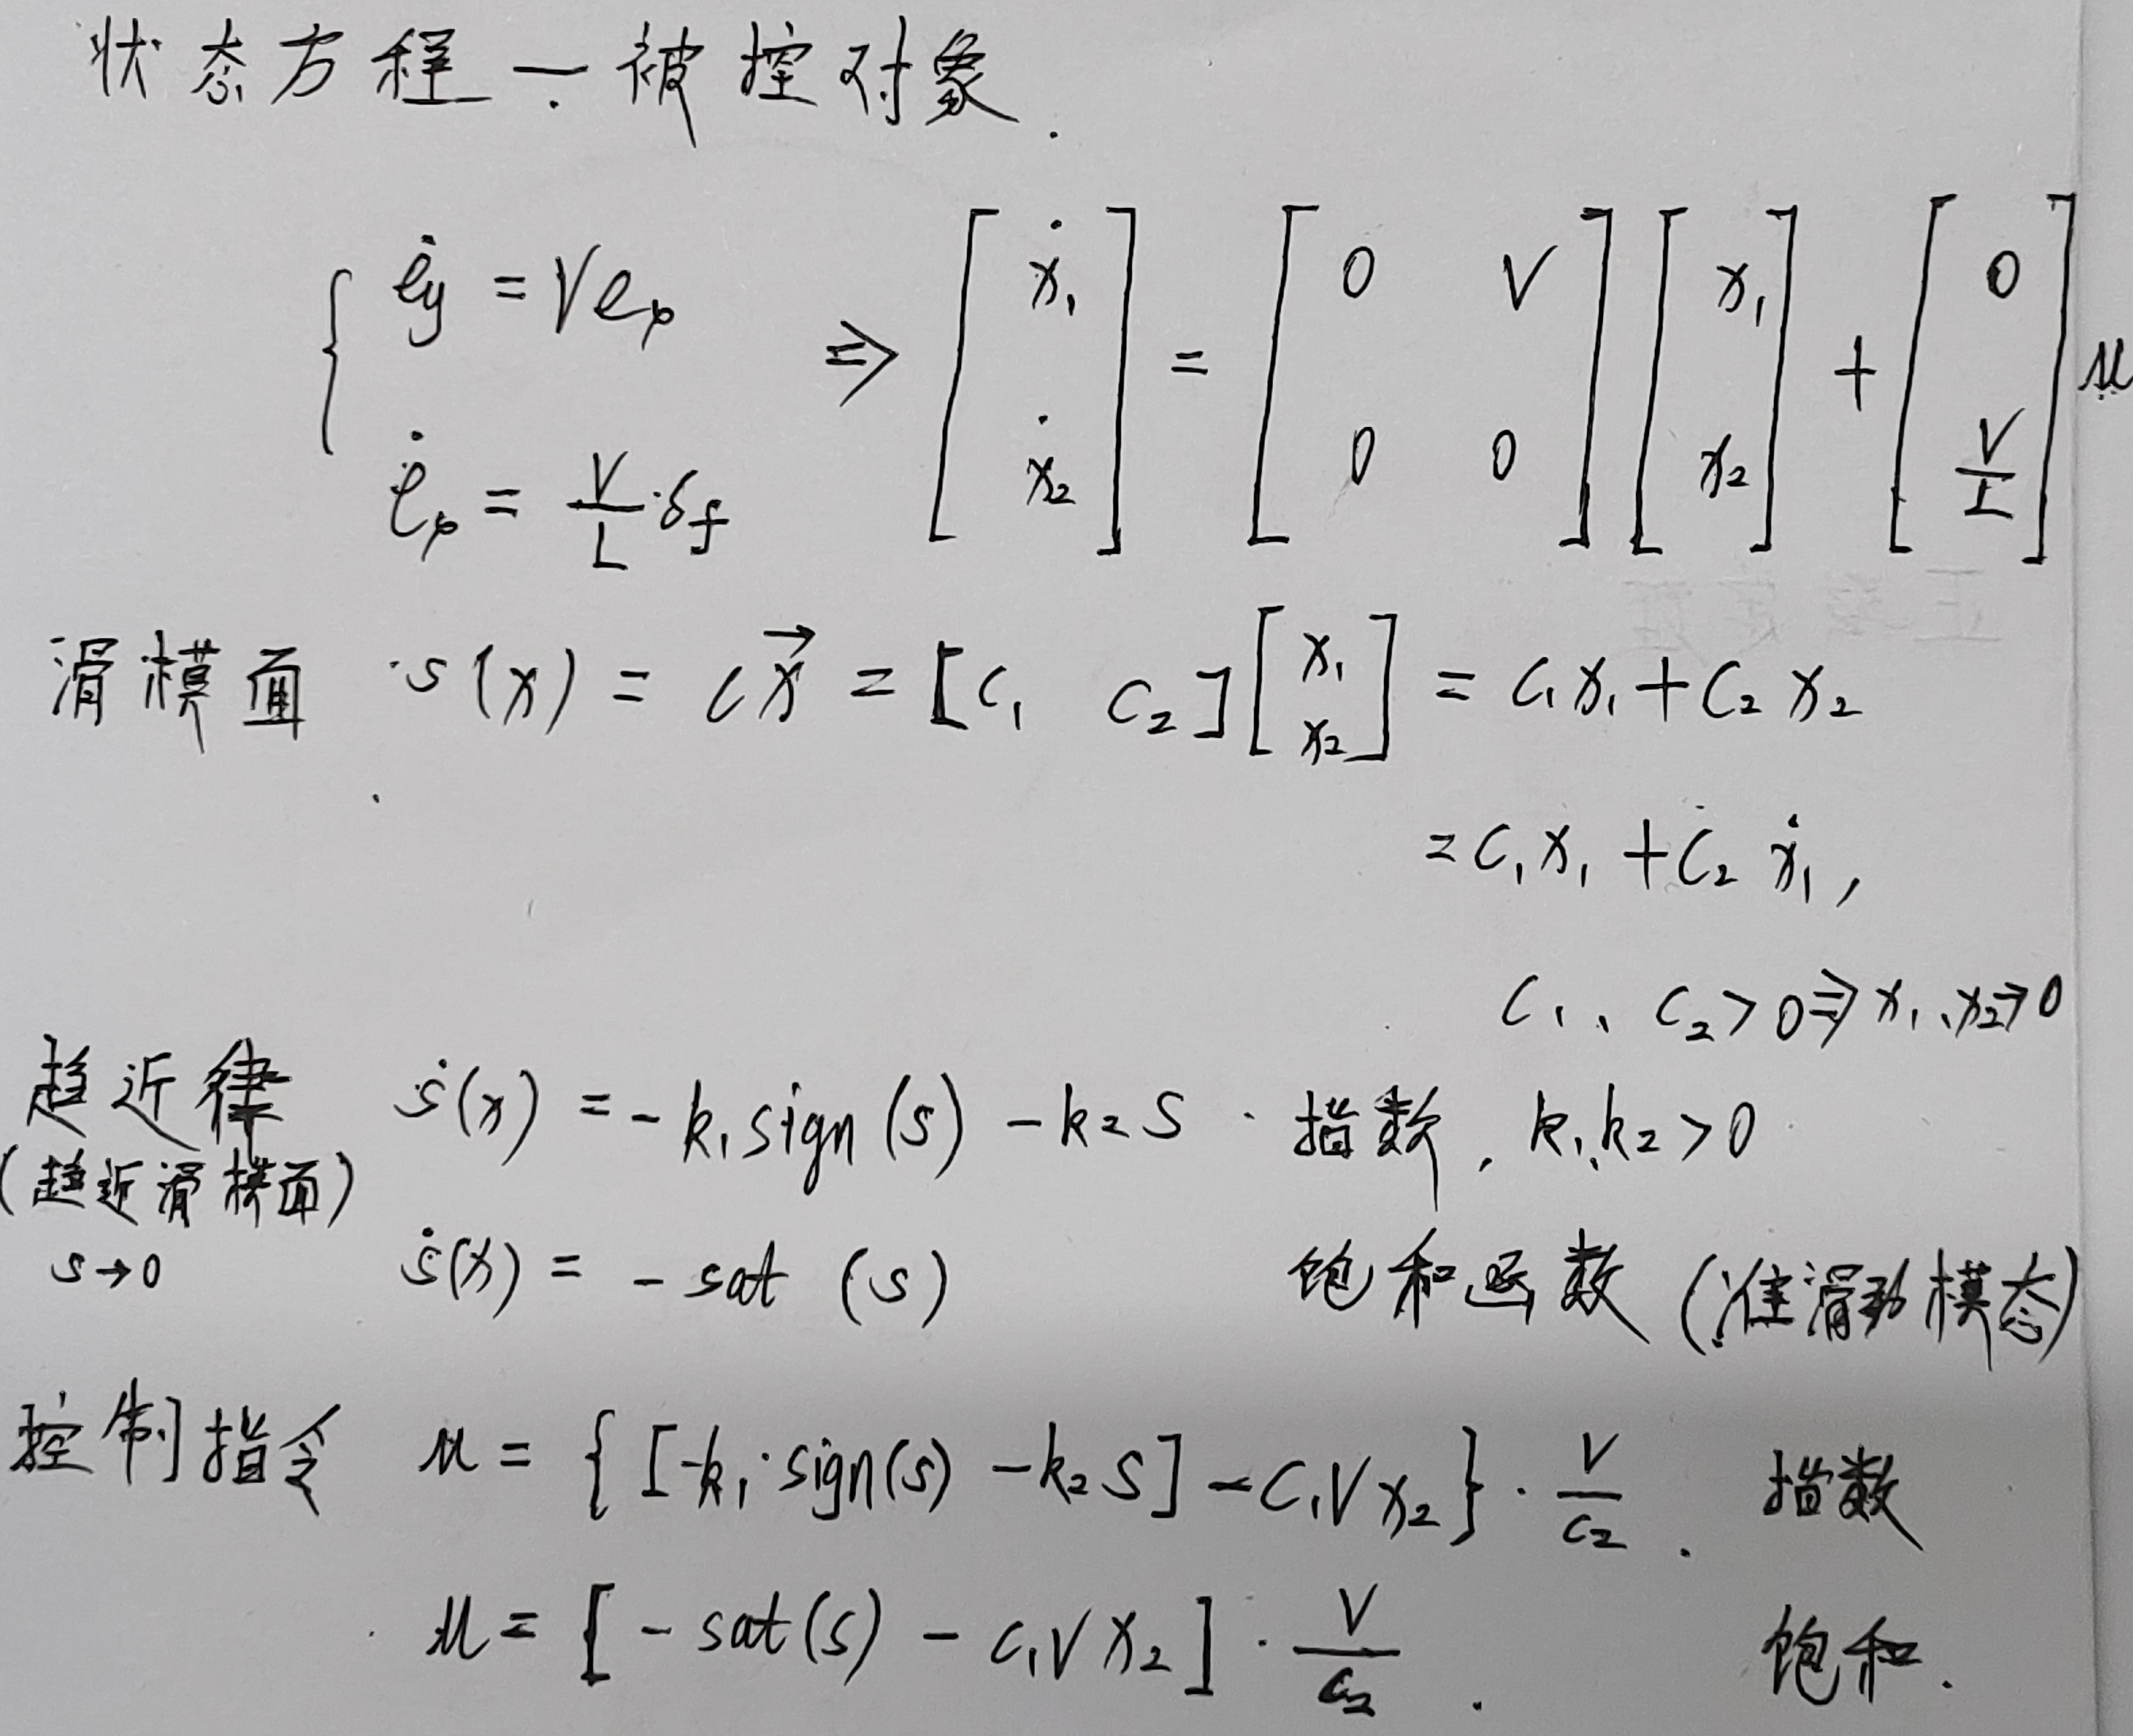 状态方程 — 被控对象.
{ ė_y = V e_φ
ė_φ = V/L · δ_f
⇒ [ẋ₁ ẋ₂] = [0 V 0 0] [x₁ x₂] + [0 V/L] u
滑模面 s(x) = c x⃗ = [c₁ c₂] [x₁ x₂] = c₁x₁ + c₂x₂
= c₁x₁ + c₂ẋ₁,
c₁、c₂ > 0 ⇒ x₁、x₂ → 0
趋近律 ṡ(x) = -k₁sign(s) - k₂s 指数, k₁、k₂ > 0
(趋近滑模面)
s→0 ṡ(x) = -sat(s) 饱和函数 (准滑动模态)
控制指令 u = {[-k₁·sign(s) - k₂s] - c₁Vx₂} · V/c₂. 指数
u = [-sat(s) - c₁Vx₂] · V/c₂. 饱和.